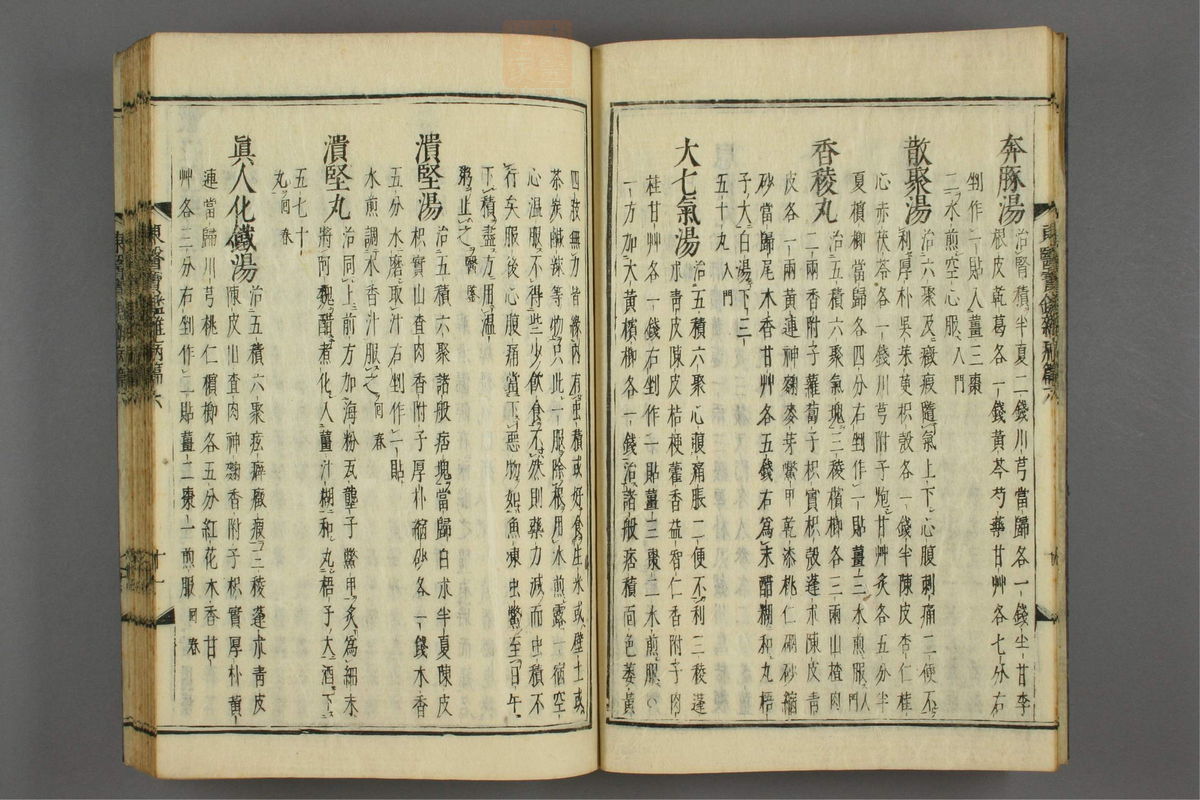 奔豚湯治腎積半夏二錢川芎當歸各一錢半甘李
根皮乾葛各一錢黃芩芍藥甘艸各七分右
剉作一貼入薑三棗
二水煎空心服入門
散聚湯治六聚及癥瘕隨氣上下心腹刺痛二便不
利厚朴吳茱萸枳殼各一錢半陳皮杏仁桂
心赤茯苓各一錢川芎附子炮甘艸炙各五分半
夏檳榔當歸各四分右剉作一貼薑三水煎服入門
香稜丸治五積六聚氣塊三稜檳榔各三兩山楂肉
二兩香附子蘿蔔子枳實枳殼蓬朮陳皮青
皮各一兩黃連神麴麥芽鱉甲乾漆桃仁硼砂縮
砂當歸尾木香甘艸各五錢右爲末醋糊和丸梧
子大白湯下三
五十丸入門
大七氣湯治五積六聚心腹痛脹二便不利三稜蓬
朮青皮陳皮桔梗藿香益智仁香附子肉
桂甘艸各一錢右剉作一貼薑三棗二水煎服○
一方加大黃檳榔各一錢治諸般痞積面色萎黃
東醫寶鑑雜病篇六
四肢無力皆緣內有虫積或好食生米或壁土或
茶炭鹹辣等物只此一服除根用水煎露一宿空
心溫服不得些少飮食不然則藥力減而虫積不
行矣服後心腹痛當下惡物如魚凍虫鱉至日午
下積盡方用溫
粥止之醫鑑
潰堅湯治五積六聚諸般痞塊當歸白朮半夏陳皮
枳實山査肉香附子厚朴縮砂各一錢木香
五分水磨取汁右剉作一貼
水煎調木香汁服之回春
潰堅丸治同上前方加海粉瓦壟子鱉甲炙爲細末
將阿魏醋煮化入薑汁糊和丸梧子大酒下
五七十
丸回春
眞人化鐵湯治五積六聚痃癖癥瘕三稜蓬朮青皮
陳皮山査肉神麴香附子枳實厚朴黃
連當歸川芎桃仁檳榔各五分紅花木香甘
艸各三分右剉作一貼薑二棗一煎服回春
東醫寶鑑雜病篇六